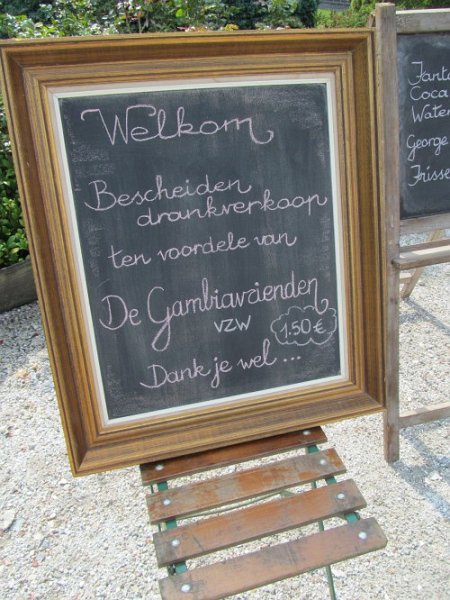 Welkom
Bescheiden
drankverkoop
ten voordele van
De Gambiavrienden
VZW
1.50 €
Dank je wel...
Fanta
Coca
Water
George
Frisse